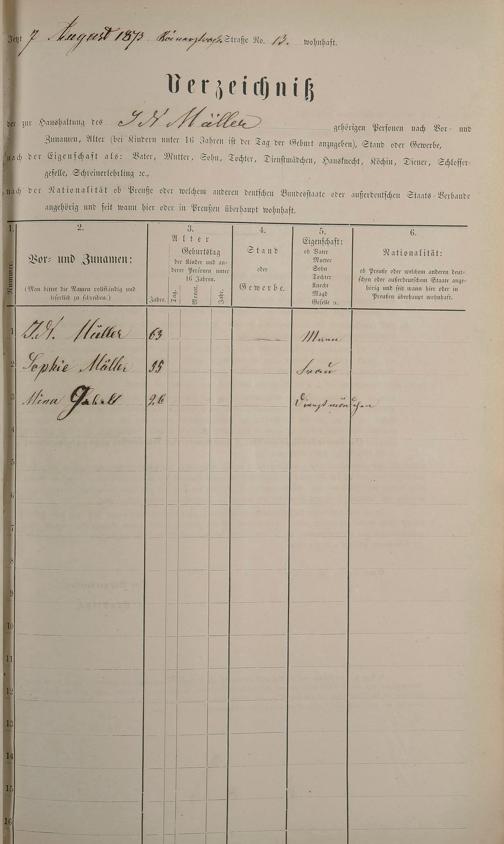 Jetzt 7 August 1873 Straße No. 13. wohnhaft.
Verzeichniß
der zur Haushaltung des J H Müller gehörigen Personen nach Vor- und
Zunamen, Alter (bei Kindern unter 16 Jahren ist der Tag der Geburt anzugeben), Stand oder Gewerbe,
nach der Eigenschaft als: Vater, Mutter, Sohn, Tochter, Dienstmädchen, Hausknecht, Köchin, Diener, Schlosser-
geselle, Schreinerlehrling ꝛc.,
nach der Nationalität ob Preuße oder welchem anderen deutschen Bundesstaate oder außerdeutschem Staats-Verbande
angehörig und seit wann hier oder in Preußen überhaupt wohnhaft.
1. 2. 3. 4. 5. 6.
Nummer.
Vor- und Zunamen:
(Man bittet die Namen vollständig und
leserlich zu schreiben.)
Alter
Geburtstag
der Kinder und an-
derer Personen unter
16 Jahren.
Jahre. Tag. Monat. Jahr.
Stand
oder
Gewerbe.
Eigenschaft:
ob Vater
Mutter
Sohn
Tochter
Knecht
Magd
Geselle ꝛc.
Nationalität:
ob Preuße oder welchem anderen deut-
schen oder außerdeutschem Staate ange-
hörig und seit wann hier oder in
Preußen überhaupt wohnhaft.
1 J. H. Müller 63 Mann
2 Sophie Müller 35 Frau
3 Mina 26 Dienstmädchen
4
5
6
7
8
9
10
11
12
13
14
15
16